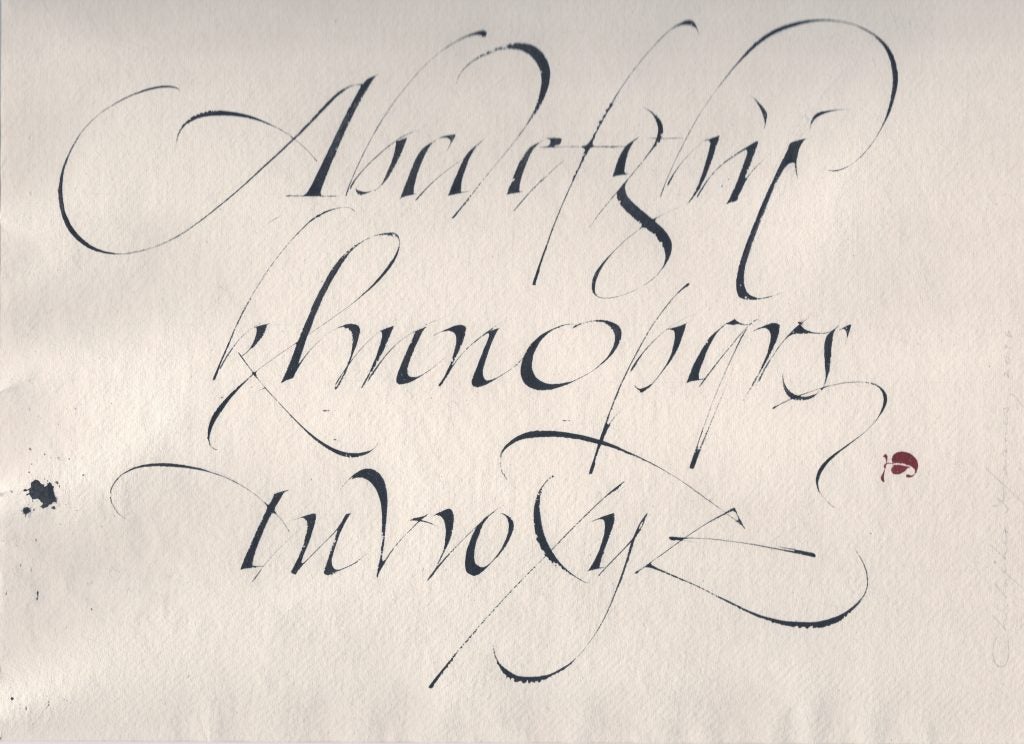 Abcdefghij
klmnopqrs
tuvwxyz